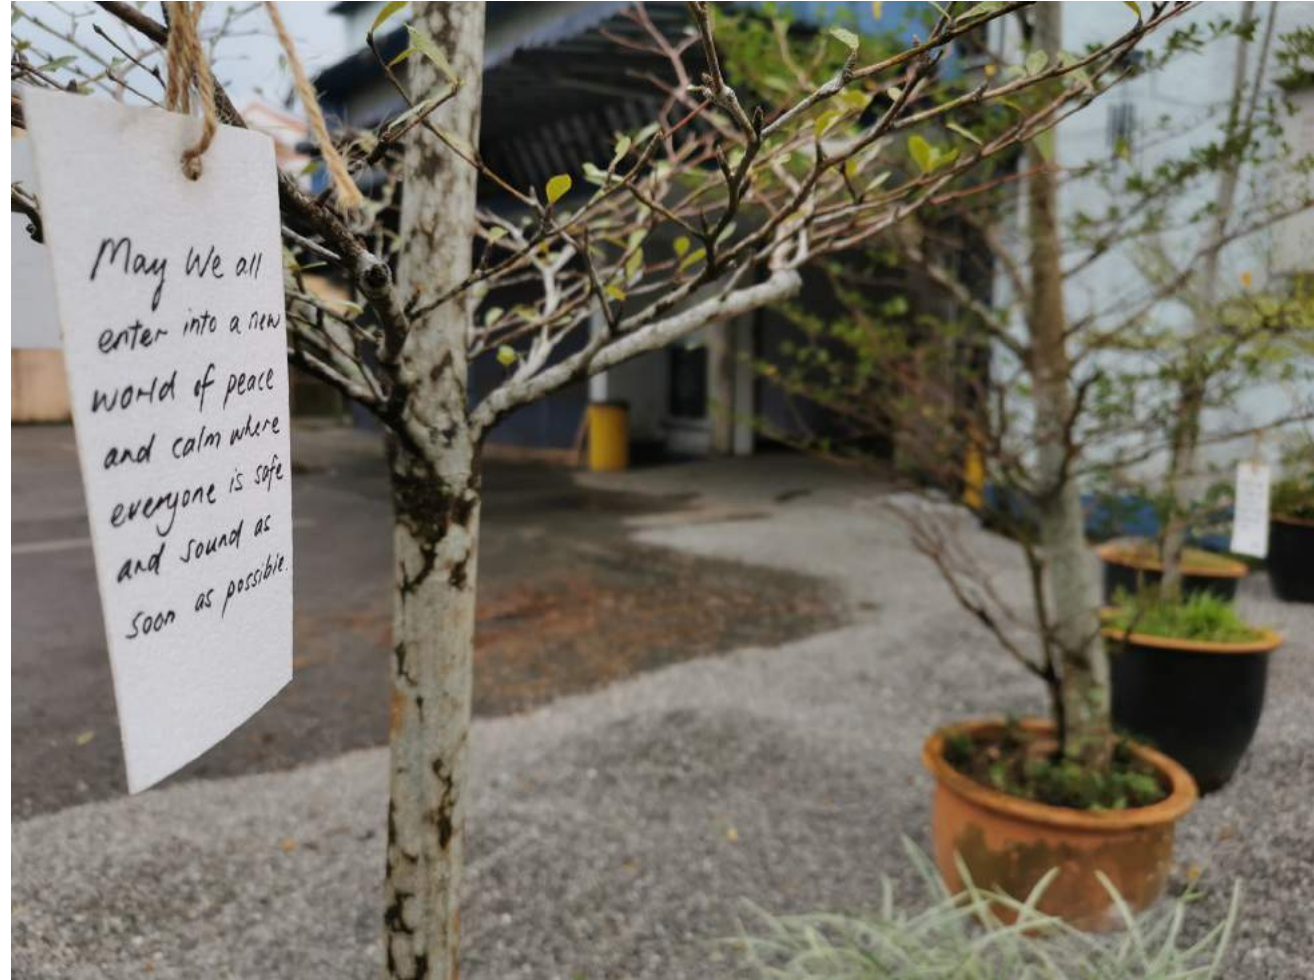 May We all
enter into a new
world of peace
and calm where
everyone is safe
and sound as
soon as possible.